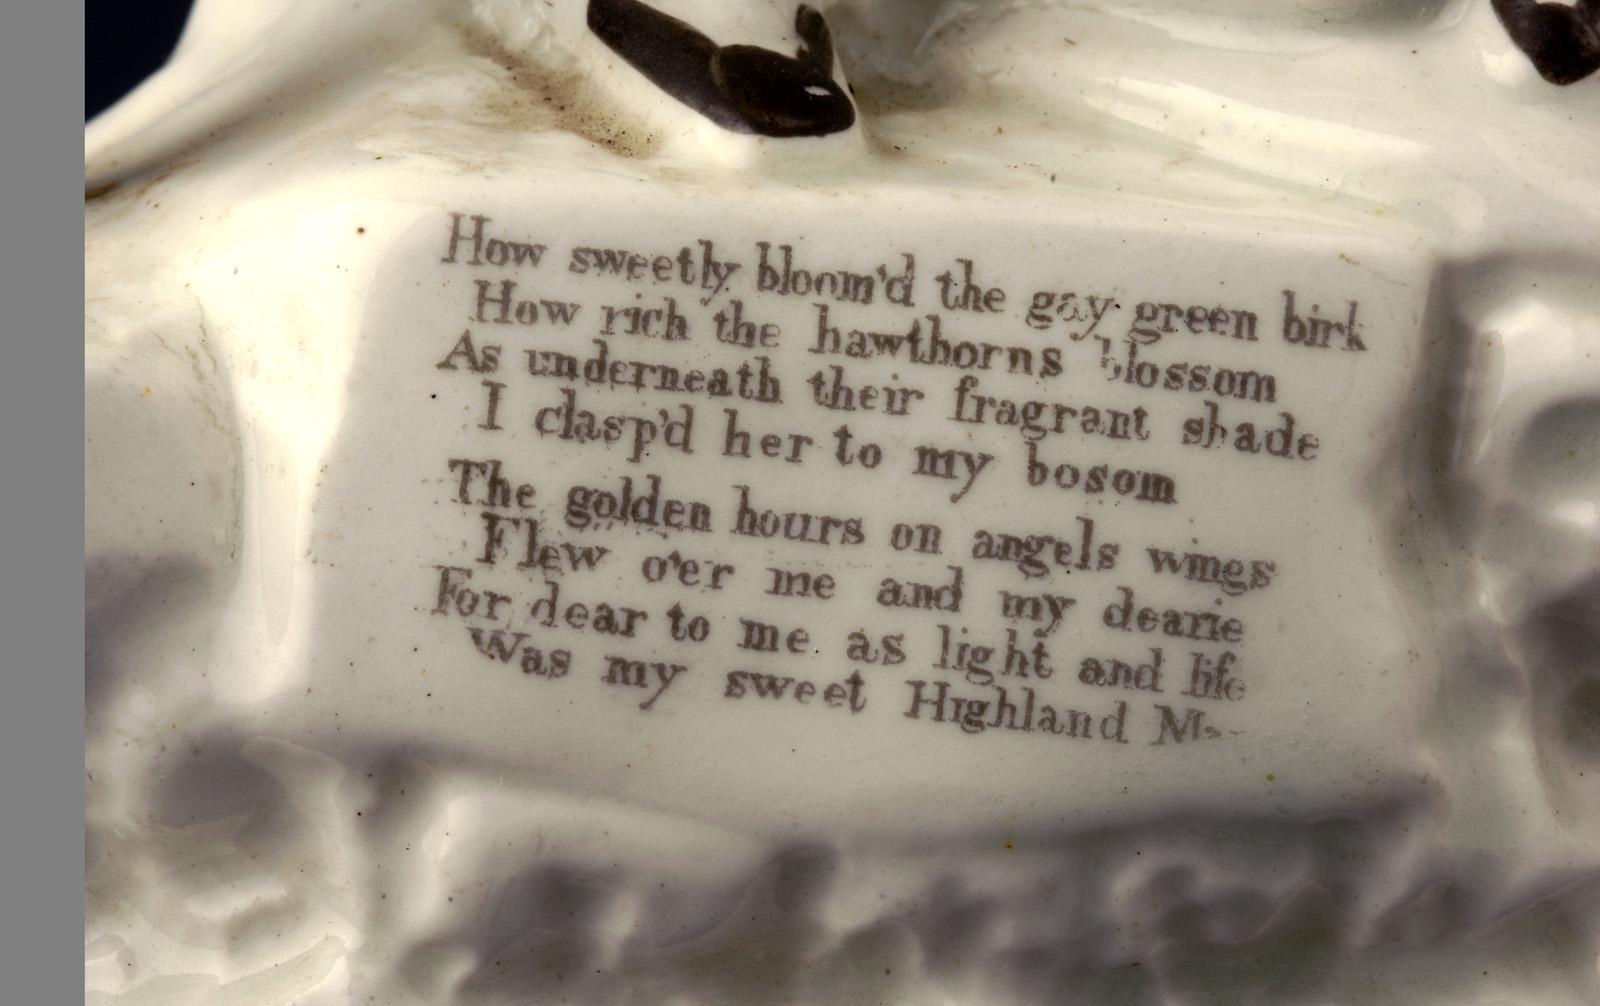 How sweetly bloom'd the gay green birk
How rich the hawthorns blossom
As underneath their fragrant shade
I clasp'd her to my bosom
The golden hours on angels wings
Flew o'er me and my dearie
For dear to me as light and life
Was my sweet Highland